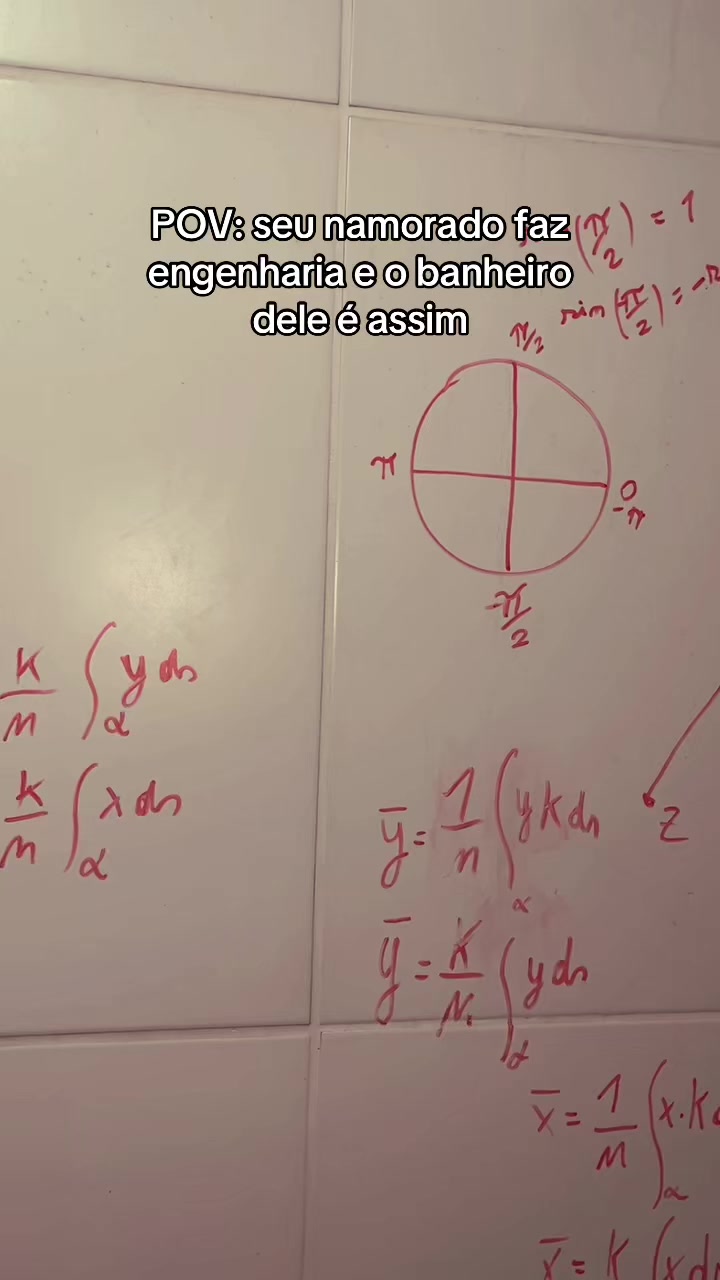 POV: seu namorado faz
engenharia e o banheiro
dele é assim
(π/2) = 1
sin(-π/2) = -
π/2
π
0
-π
-π/2
k/m ∫α y ds
k/m ∫α x ds
ȳ = 1/m ∫α y k ds
z
ȳ = k/m ∫α y ds
x̄ = 1/m ∫α x·k
x̄ = k ∫ x d